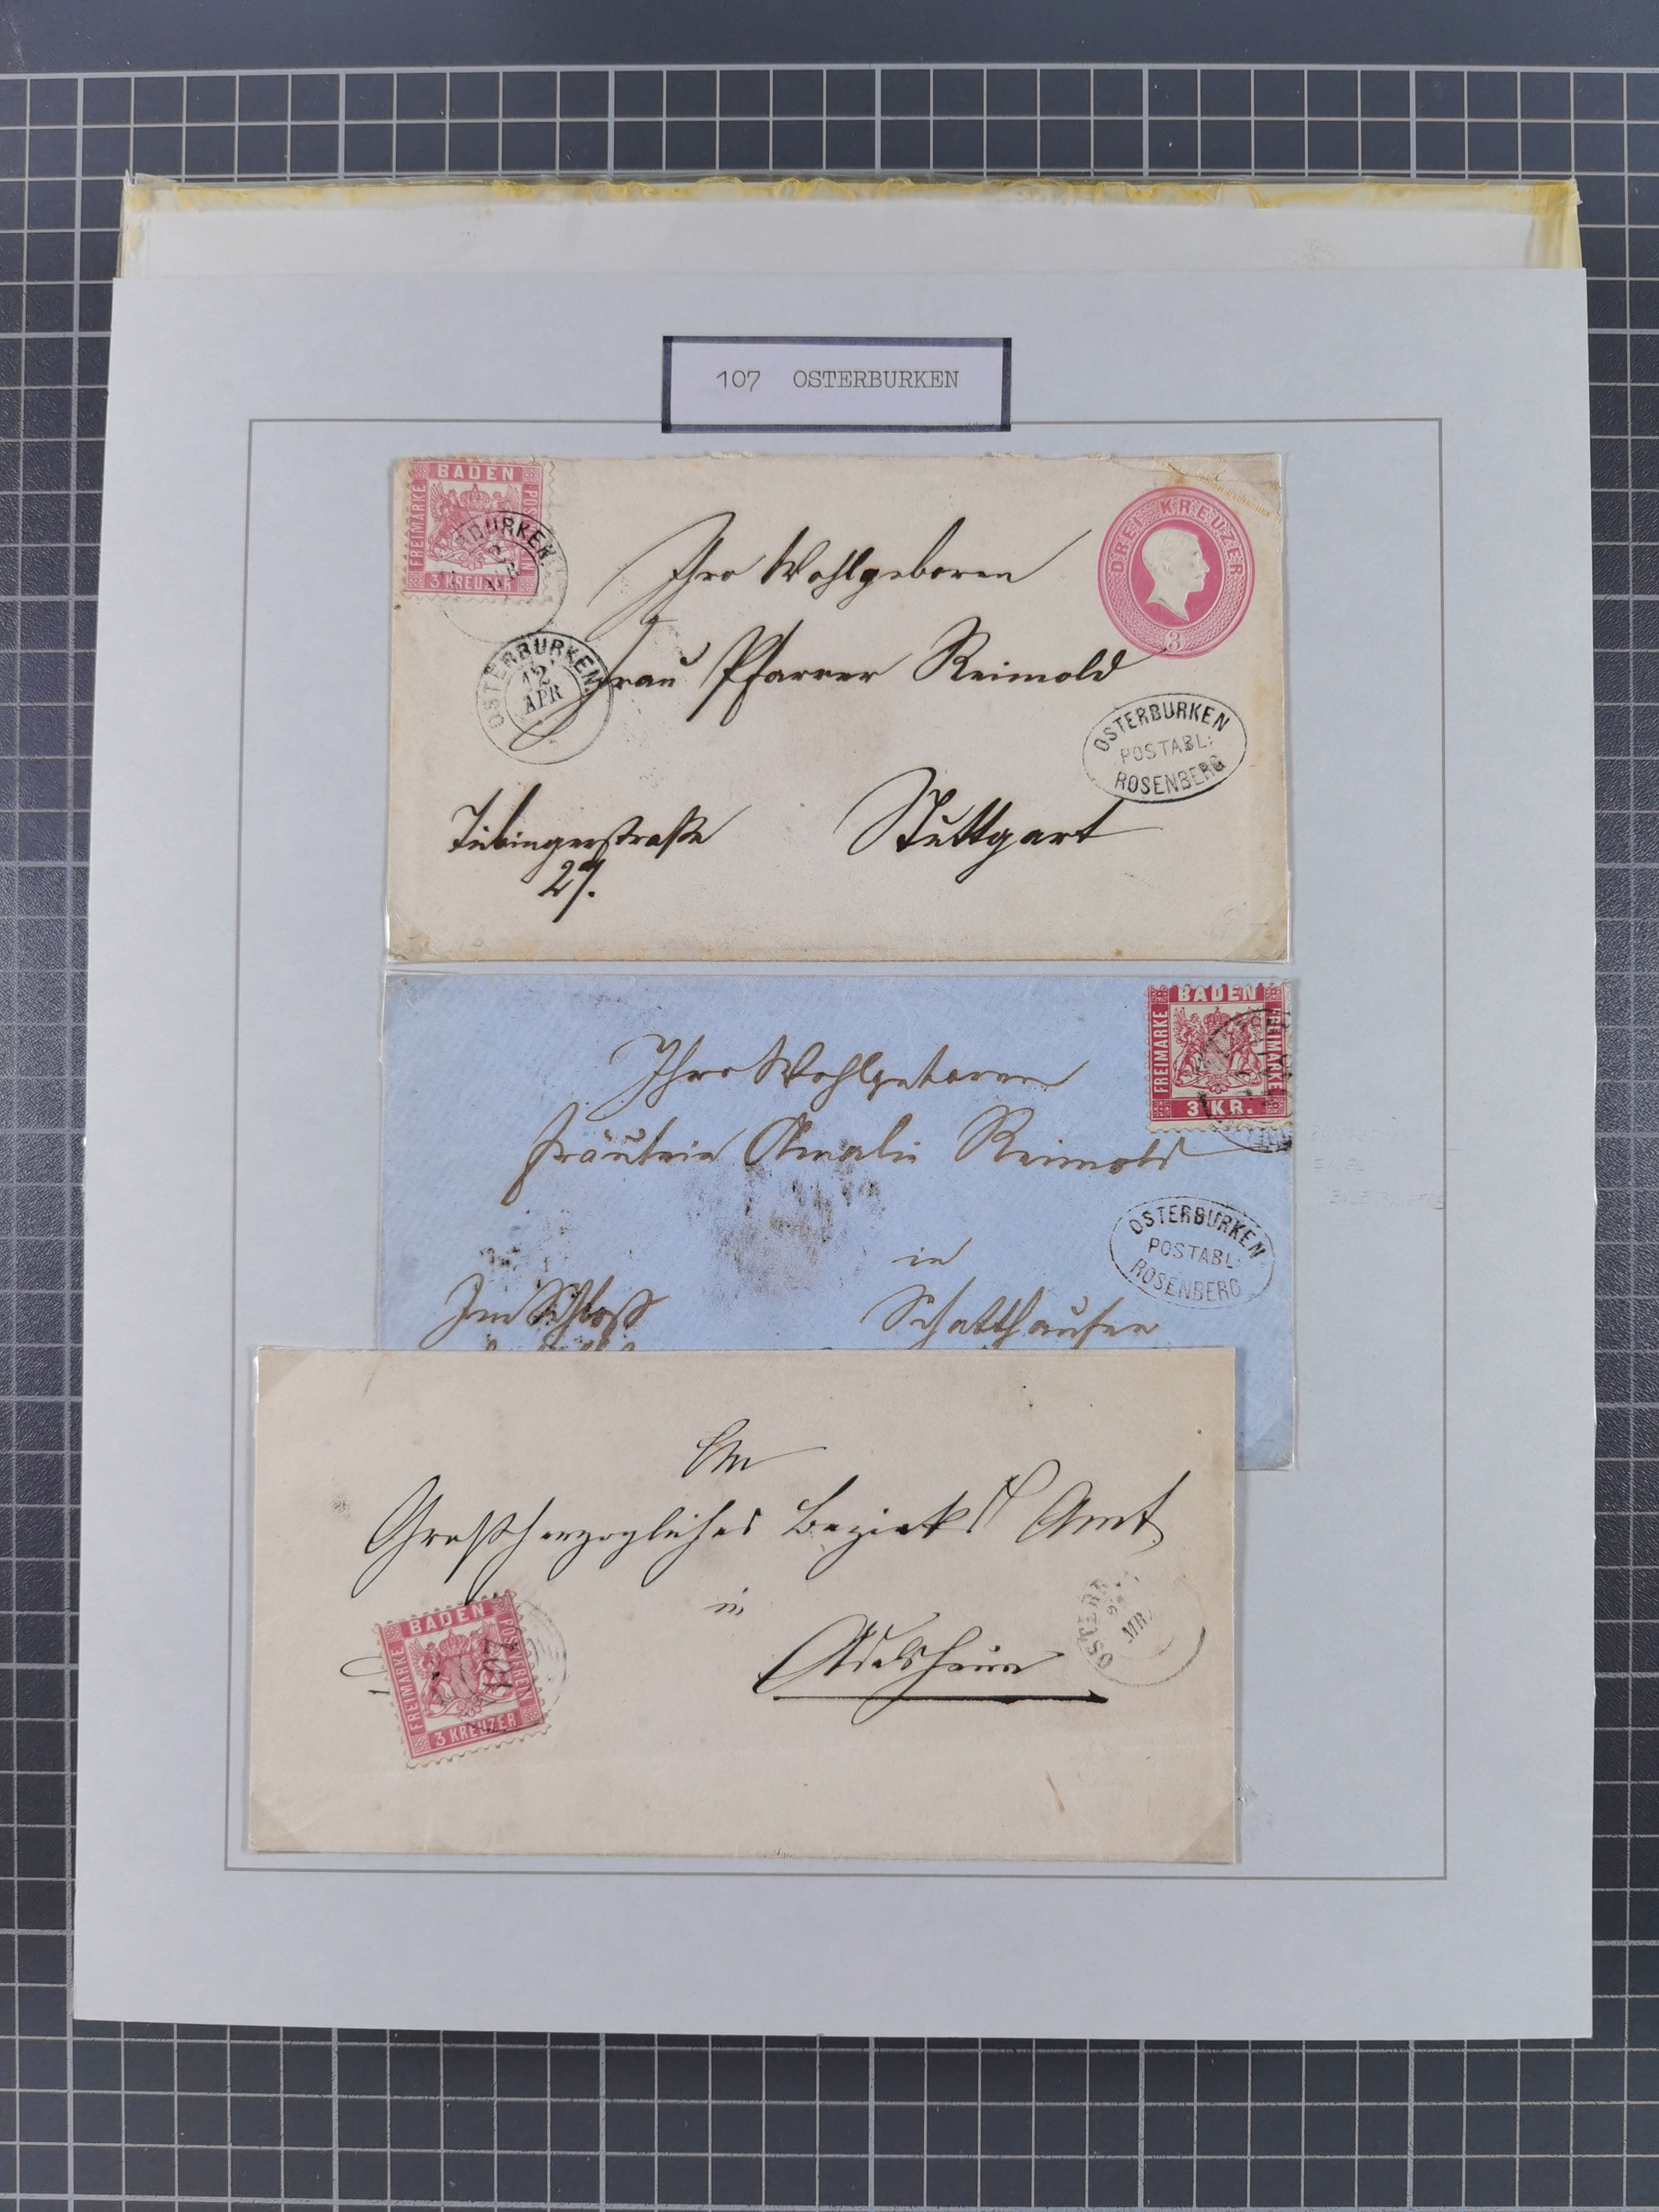 107 OSTERBURKEN
BADEN
FREIMARKE
3 KREUZER
RBURKEN.
DREI KREUZER
3
Ihro Wohlgeboren
Frau Pfarrer Reimold
OSTERBURKEN.
12
APR
OSTERBURKEN
POSTABL:
ROSENBERG
Tübingerstraße
27.
Stuttgart
BADEN
FREIMARKE
FREIMARKE
3 KR.
Ihro Wohlgeboren
Fräulein Amalie Reimold
OSTERBURKEN
POSTABL:
ROSENBERG
in
Im Schloß
Schatthausen
An
Großherzogliches Bezirks Amt
in
Adelsheim
OSTERB
MRZ
BADEN
FREIMARKE
POSTVEREIN
3 KREUZER
107